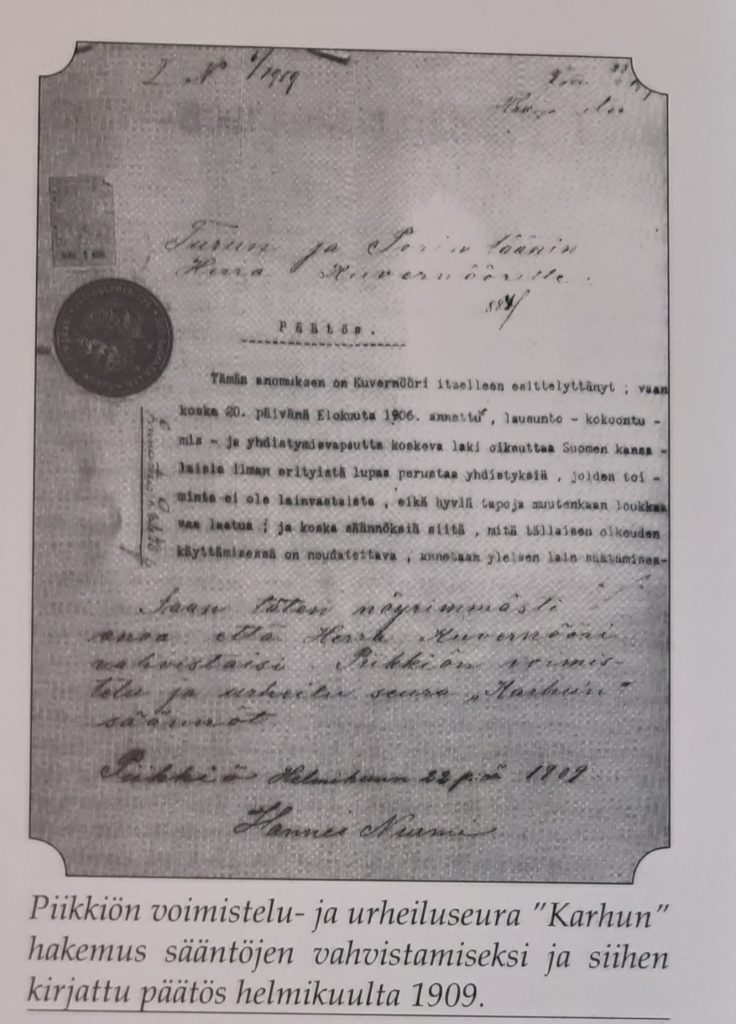 I N 6/1909
Turun ja Porin läänin
Herra Kuvernöörille.
884/
Päätös.
Tämän anomuksen on Kuvernööri itselleen esittelyttänyt ; vaan
koska 20. päivänä Elokuuta 1906. annettu , lausunto - kokoontu -
mis - ja yhdistymisvapautta koskeva laki oikeuttaa Suomen kansa -
laisia ilman erityistä lupaa perustaa yhdistyksiä , joiden toi -
minta ei ole lainvastaista , eikä hyviä tapoja muutenkaan loukkaa
vaa laatua ; ja koska säännöksiä siitä , mitä tällaisen oikeuden
käyttämisessä on noudatettava , annetaan yleisen lain säätämises-
Saan täten nöyrimmästi
anoa että Herra Kuvernööri
vahvistaisi Piikkiön voimis-
telu ja urheilu seura „Karhun"
säännöt
Piikkiö Helmikuun 22 p:nä 1909
Hannes Nurmi
Piikkiön voimistelu- ja urheiluseura ”Karhun”
hakemus sääntöjen vahvistamiseksi ja siihen
kirjattu päätös helmikuulta 1909.